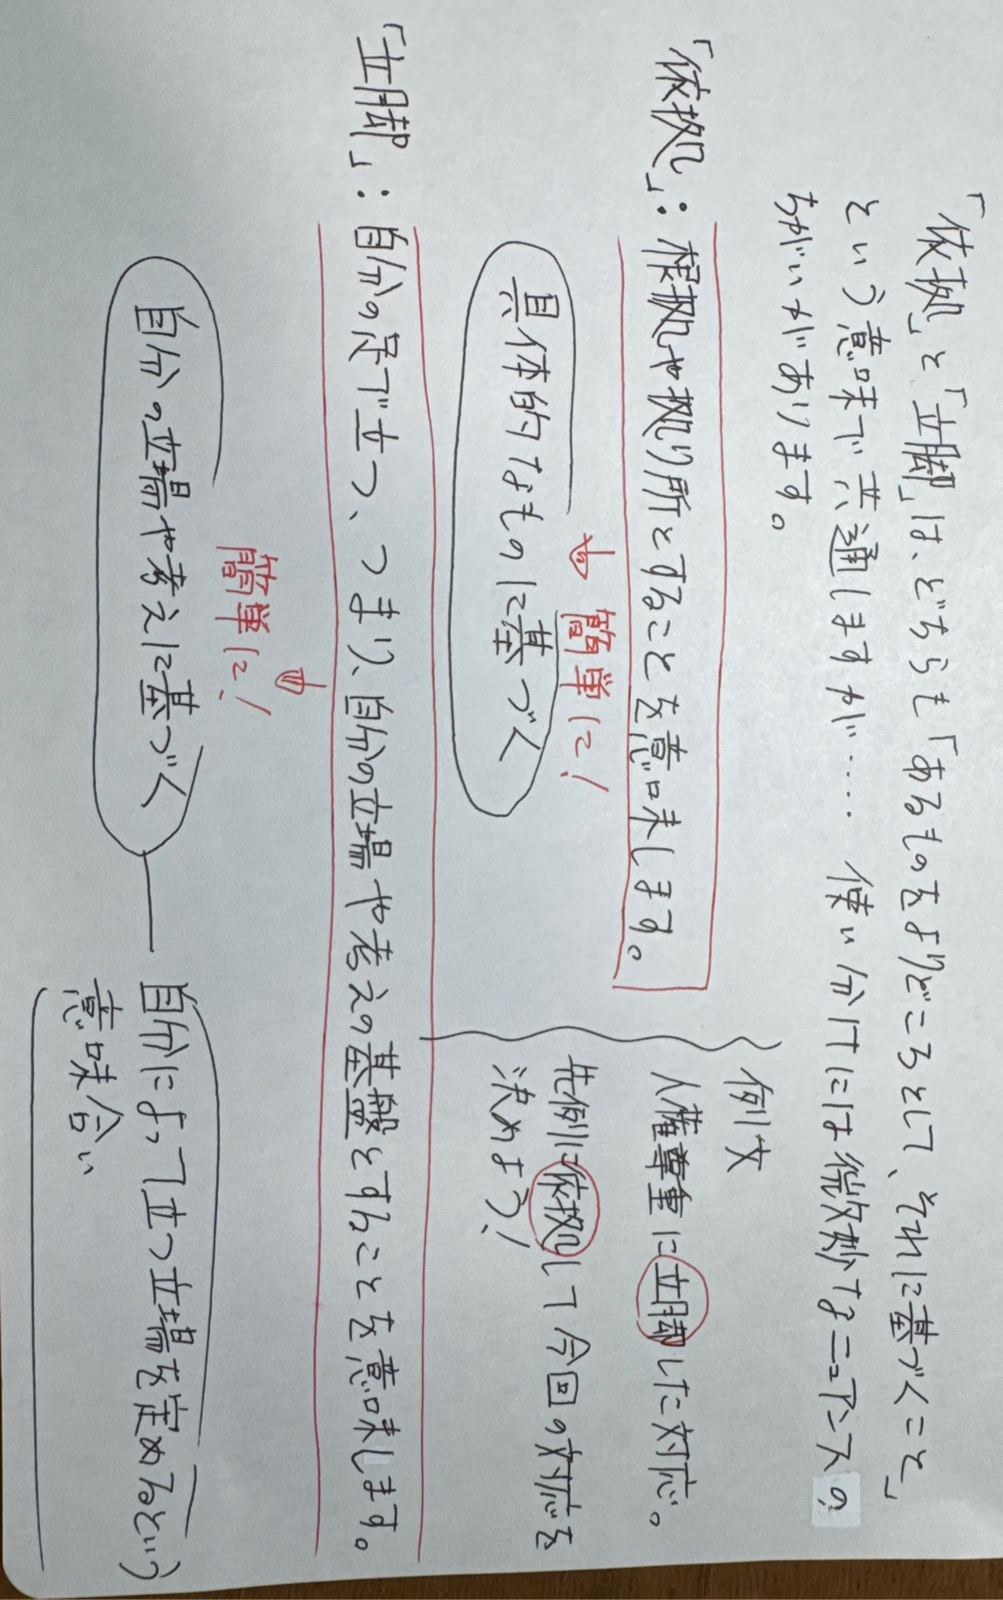 「依拠」と「立脚」は、どちらも「あるものをよりどころとして、それに基づくこと」
という意味で共通しますが…… 使い分けには微妙なニュアンスの
ちがいがあります。
「依拠」：根拠や拠り所とすることを意味します。
↓ 簡単に！
具体的なものに基づく
例文
人権尊重に立脚した対応。
先例に依拠して今回の対応を
決めよう！
「立脚」：自分の足で立つ、つまり、自分の立場や考えの基盤とすることを意味します。
↓
簡単に！
自分の立場や考えに基づく
自分によって立つ立場を定めるという
意味合い